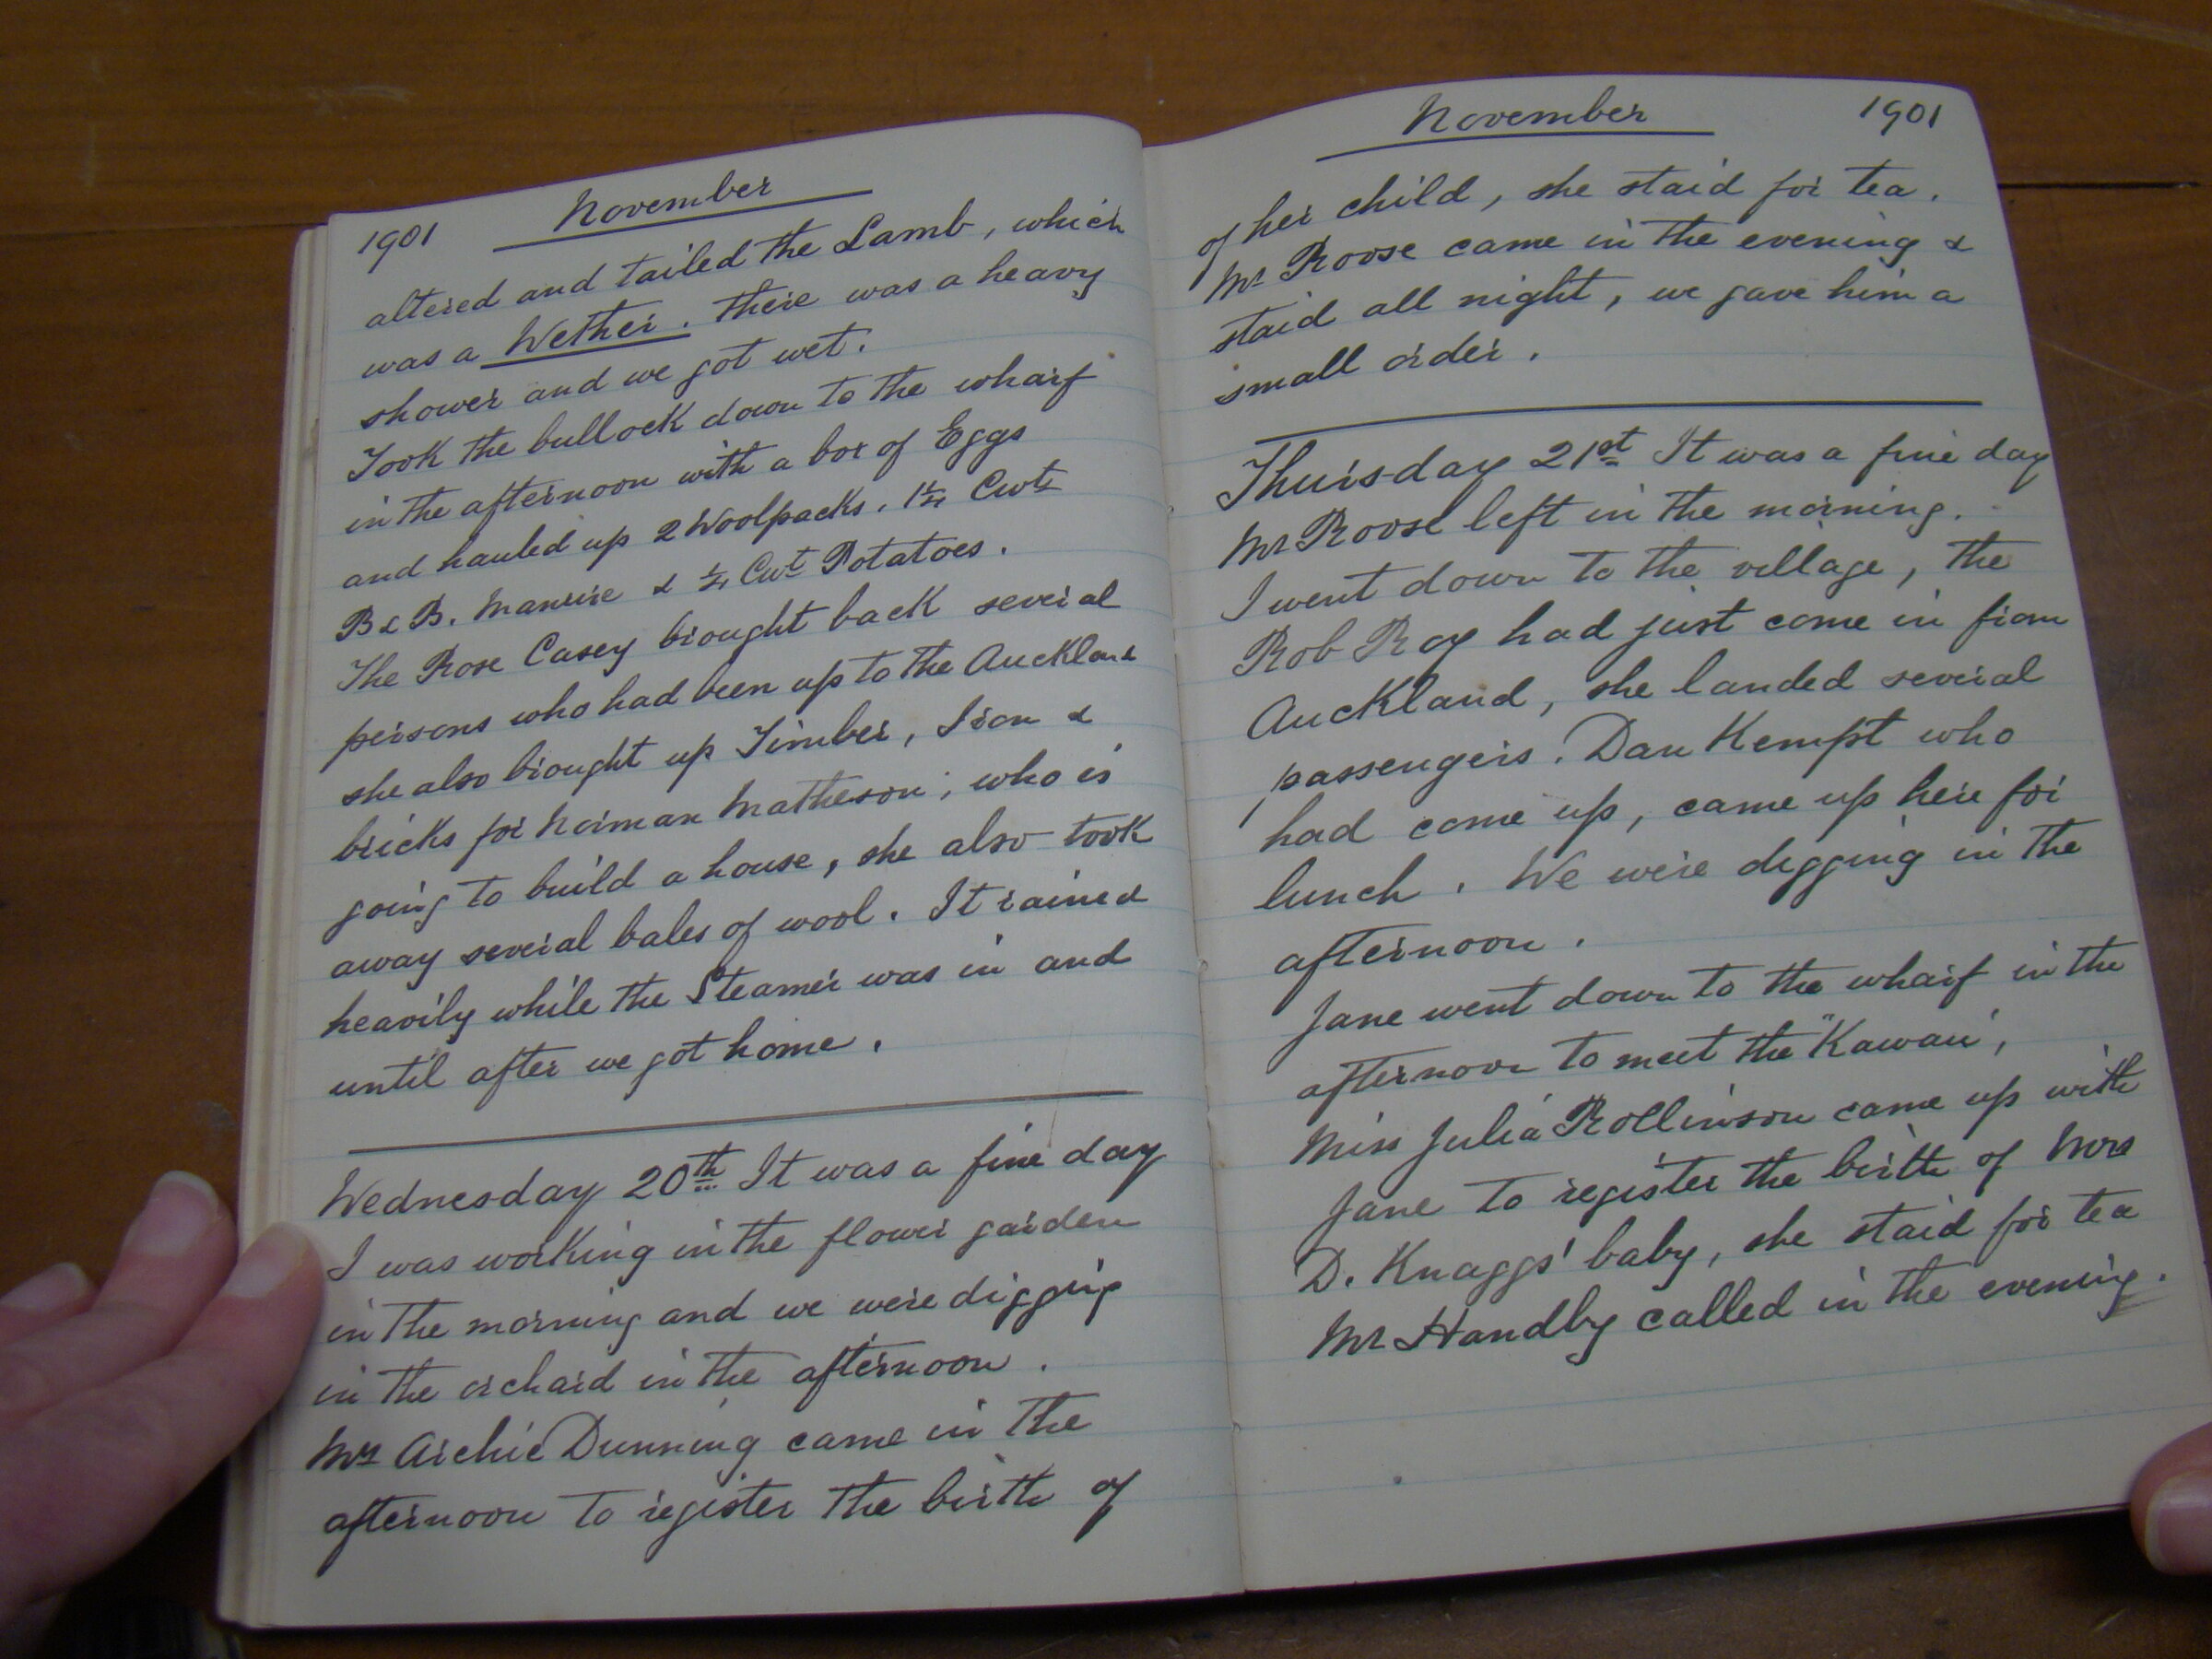 1901 November
altered and tailed the Lamb, which
was a Wether. There was a heavy
shower and we got wet.
Took the bullock down to the wharf
in the afternoon with a box of Eggs
and hauled up 2 Woolpacks. 1¼ Cwts
B & B. Manure & ¼ Cwt Potatoes.
The Rose Casey brought back several
persons who had been up to the Auckland
she also brought up Timber, Iron &
bricks for Norman Matheson, who is
going to build a house, she also took
away several bales of wool. It rained
heavily while the Steamer was in and
until after we got home.
Wednesday 20th It was a fine day
I was working in the flower garden
in the morning and we were digging
in the orchard in the afternoon.
Mrs Archie Dunning came in the
afternoon to register the birth of
November 1901
of her child, she staid for tea.
Mr Roose came in the evening &
staid all night, we gave him a
small order.
Thursday 21st It was a fine day
Mr Roose left in the morning.
I went down to the village, the
Rob Roy had just come in from
Auckland, she landed several
passengers. Dan Kempt who
had come up, came up here for
lunch. We were digging in the
afternoon.
Jane went down to the wharf in the
afternoon to meet the "Kawau",
Miss Julia Rollinson came up with
Jane to register the birth of Mrs
D. Knaggs' baby, she staid for tea
Mr Handby called in the evening.